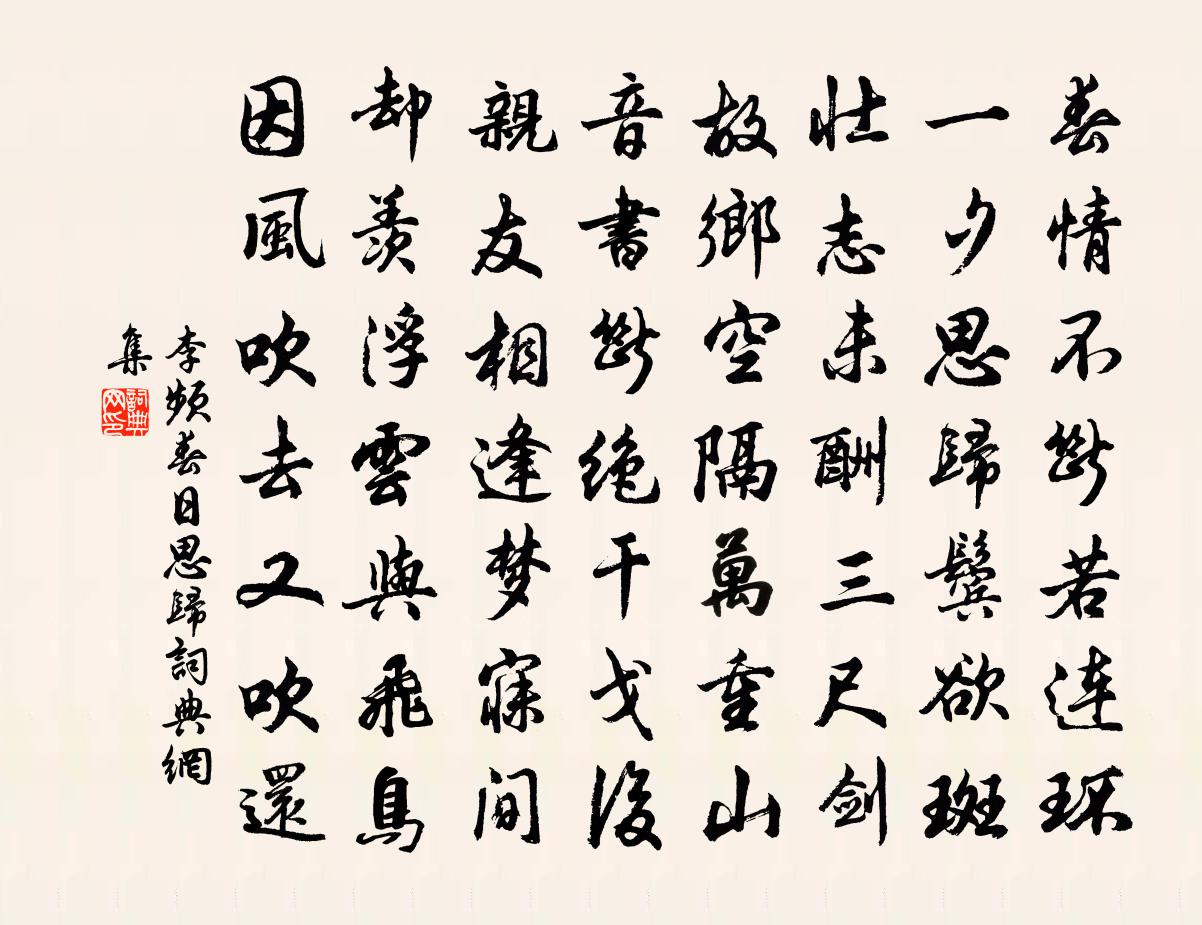 春情不斷若連環
一夕思歸鬢欲斑
壯志未酬三尺劍
故鄉空隔萬重山
音書斷絕干戈後
親友相逢夢寐間
却羨浮雲與飛鳥
因風吹去又吹還
李頻春日思歸詞典網
集
詞典
网印